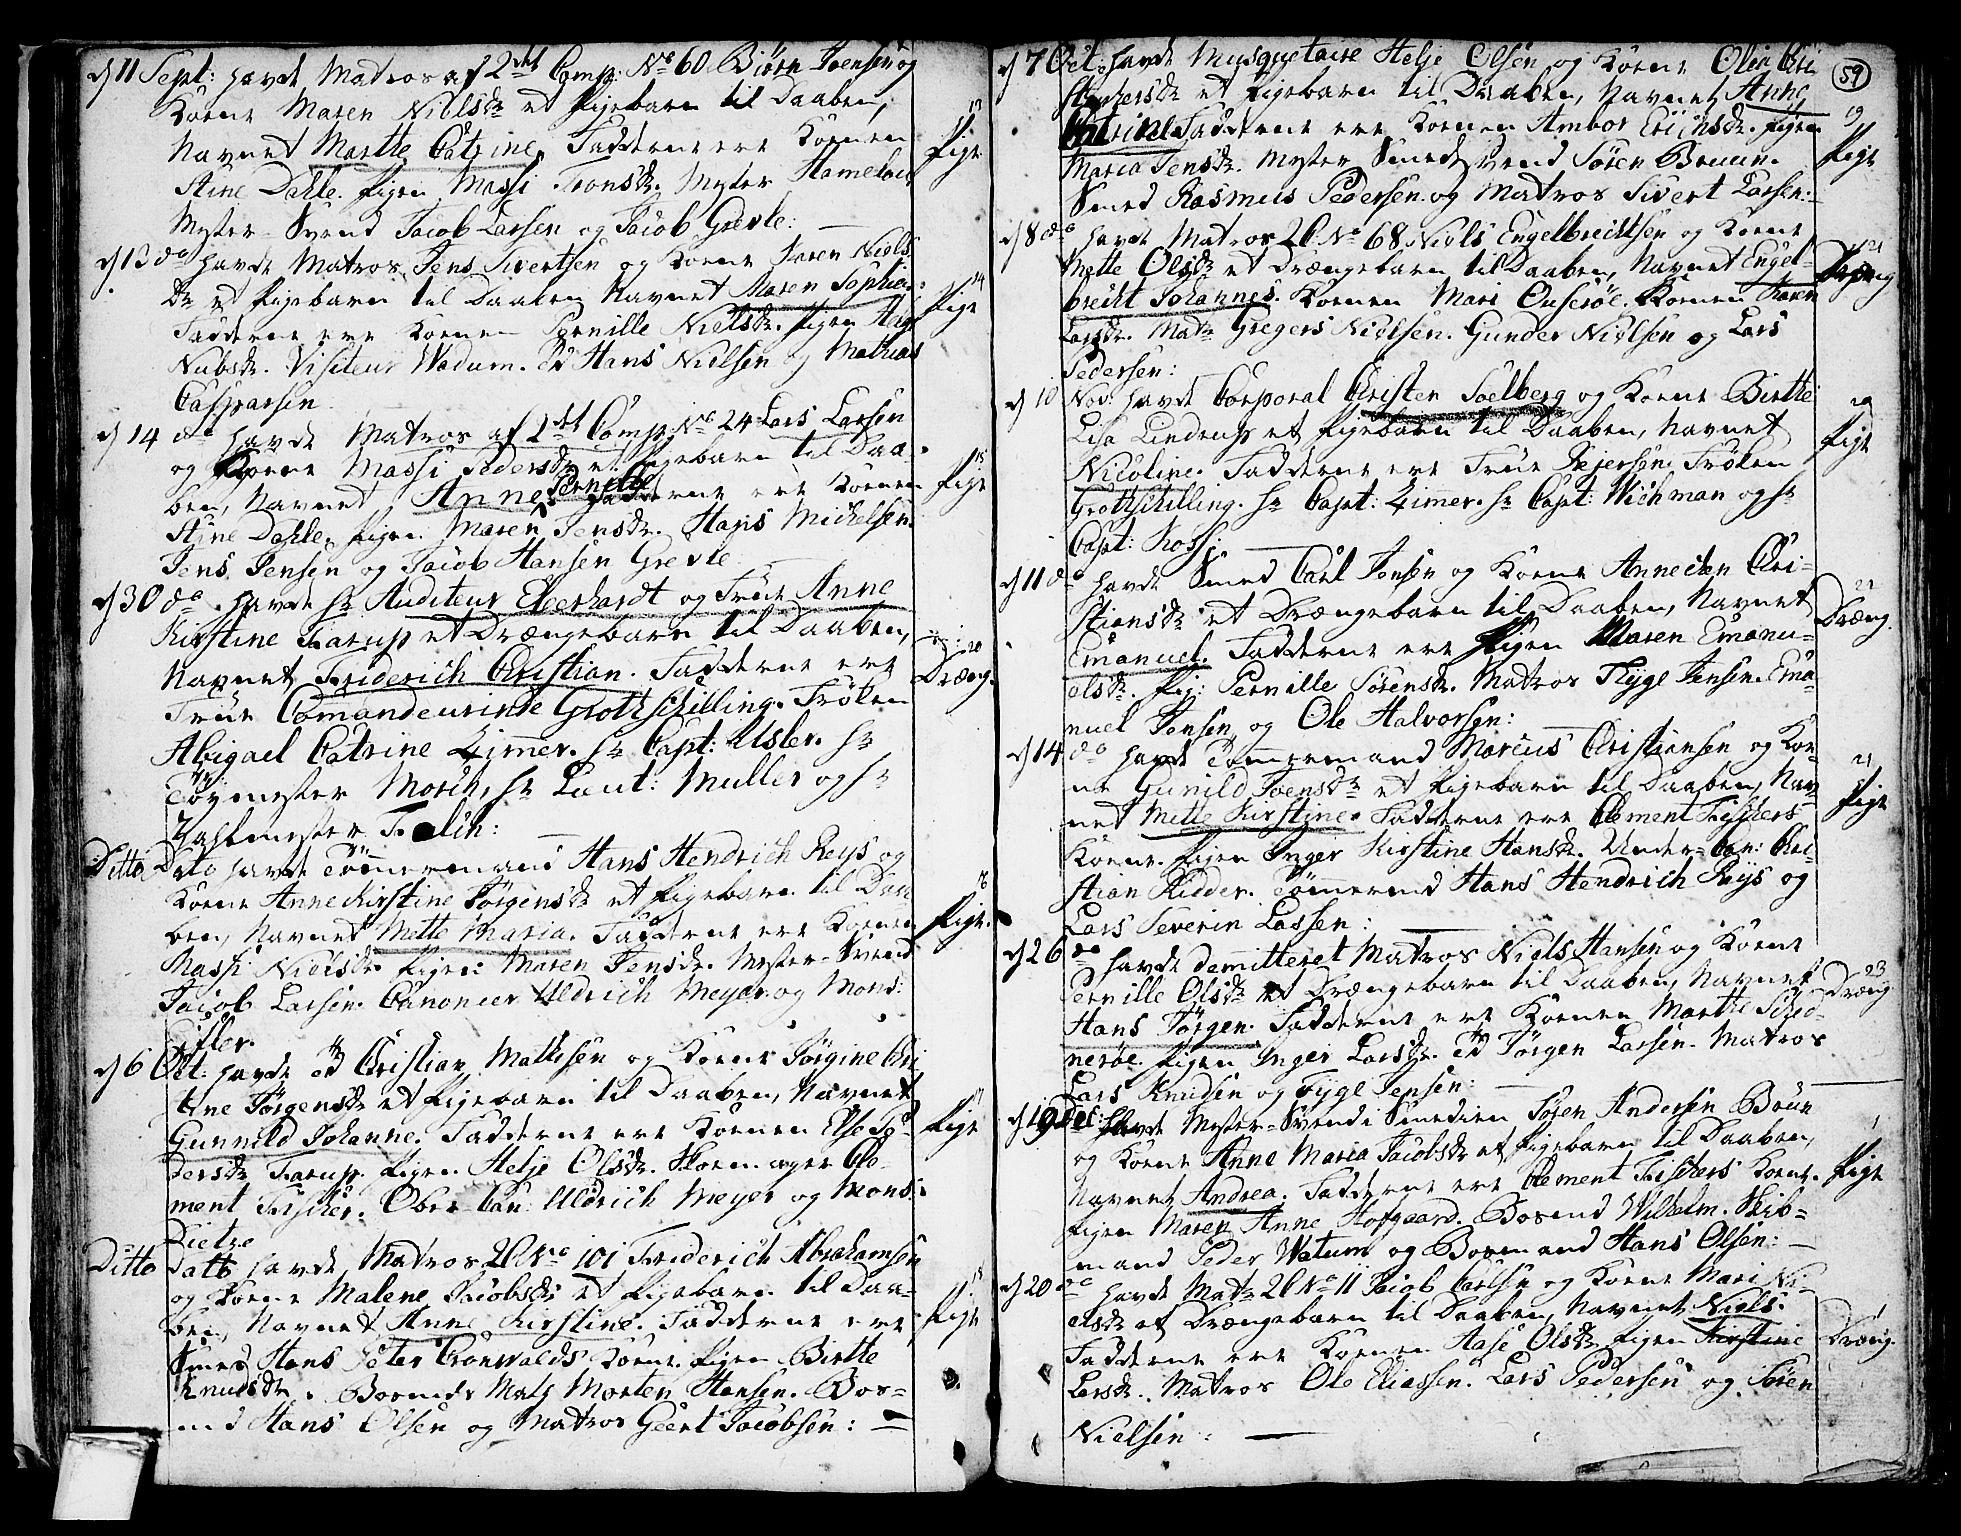 d 11 Sept: havde Matros af 2det Comp: No 60 Biørn Joensen og
Kone Maren Nielsdr et Pigebarn til Daaben,
Navnet Marthe Catrine. Fadderne ere Konen
Stine Dahle. Pigen Massi Tronsdr. Mester
Mester-Svend Jacob Larsen og Jacob Grevle:
13
Pige
d 13 do havde Matros Jens Sivertsen og Kone Karen Niels
dr et Pigebarn til Daaben Navnet Maren Sophia:
Fadderne ere Konen Pernille Nielsdr. Pigen
Nubsdr. Visiteur Wadum. Hans Nielsen og Mathias
Casparsen
14
Pige
d 14 do havde Matros af 2det Comp: No 24 Lars Larsen
og Kone Massi Pedersdr et Pigebarn til Daa-
ben, Navnet Anne Pernille Fadderne ere Konen
Stine Dahle, Pigen Maren Jensdr. Hans Michelsen.
Jens Jensen og Jacob Hansen Grevle
15
Pige
d 30 do havde Hr Auditeur Eberhardt og Frue Anne
Kirstine Farup et Drængebarn til Daaben,
Navnet Friderich Christian. Fadderne ere
Frue Comandeurinde Grottschilling. Frøken
Abigael Catrine Zimmer. Hr Capt: Usler. Hr
Tøymester Morch, Hr Lieut: Muller og Hr
20
Dræng.
Ditto Dato havde Tømermand Hans Hendrich Reys og
Kone Anne Kirstine Jørgensdr et Pigebarn til Daa
ben, Navnet Mette Maria. Fadderne ere Konen
Massi Nielsdr. Pigen Maren Jensdr. Mester-Svend
Jacob Larsen. Canoneer Uldrich Meyer og Mons:
Eifler.
16
Pige.
d 6 Oct: havde Christian Mathesen og Kone Jørgine Chri
stine Jørgensdr et Pigebarn til Daaben, Navnet
Gunnild Johanne. Fadderne ere Konen Else Pe-
dersdr Farup. Pigen Helje Olsdr. Cle-
ment Fischer. Ober Can: Uldrich Meyer og Mons:
Dietze
17
Pige
Ditto Dato havde Matros 2C No 101 Friderich Abrahamsen
og Kone Malene Jacobsdr et Pigebarn til Daa-
ben, Navnet Anne Kirstine. Fadderne ere
Smed Hans Peter Cronwalds Kone. Pigen Birthe
Knudsdr. Matz Morten Hansen. Bos-
md Hans Olsen og Matros Geert Jacobsen: —
18
Pige
59
d 7 Oct: havde Musquetaire Helje Olsen og Kone Olea Chri
stophersdr et Pigebarn til Daaben, Navnet Anne
Catrine Fadderne ere Konen Ambor Erichsdr. Pigen
Maria Jensdr. Mester Smed Svend Søren Bruun.
Smed Rasmus Pedersen og Matros Sivert Larsen:
19
Pige
d 8 do havde Matros 2C No 68 Niels Engelbrechtsen og Kone
Mette Olsdr et Drængebarn til Daaben, Navnet Engel-
brecht Johannes. Konen Mari Onserøe. Konen Karen
Larsdr. Matr Gregers Nielsen. Gunder Nielsen og Lars
Pedersen:
21
Dræng
d 10 Nov: havde Corporal Christen Soelberg og Kone Birthe
Lisa Lindrup et Pigebarn til Daaben, Navnet
Nicoline. Fadderne ere Frue Rejersen Frøken
Grottschilling. Hr Capt: Zimer. Hr Capt: Wichman og Hr
Capt: Koss:
20
Pige
d 11 do havde Smed Carl Jensen og Kone Annecken Chri-
stiansdr et Drængebarn til Daaben, Navnet
Emanuel. Fadderne ere Pigen Maren Emanu-
elsdr. Pig: Pernille Sørensdr. Matros Thyge Jensen. Ema-
nuel Jensen, og Ole Halvorsen:
22
Dræng.
d 14 do havde Tømermand Marcus Christiansen og Ko-
ne Gunild Joensdr et Pigebarn til Daaben, Nav-
net Mette Kirstine. Fadderne ere Clement Fischers
Kone. Pigen Inger Kirstine Hansdr. Under-Can: Chri-
stian Ridder. Tømermd Hans Hendrich Reys og
Lars Severin Lassen:
21
Pige
d 26 do havde demitteret Matros Niels Hansen og Kone
Pernille Olsdr et Drængebarn til Daaben, Navnet
Hans Jørgen. Fadderne ere Konen Marthe Sched-
nerøe. Pigen Inger Larsdr. Jørgen Larsen. Matros
Lars Knudsen og Tyge Jensen:
23
Dræng
d 19 Dec: havde Mester-Svend i Smedien Søren Andersen Bruun
og Kone Anne Maria Jacobsdr et Pigebarn til Daaben,
Navnet Andrea. Fadderne ere Clement Fischers Kone.
Pigen Maren Anne Hofgaard. Bosmd Wilhelm. Skib-
mand Peder Watum og Bosmand Hans Olsen: —
1
Pige
d 20 do havde Matr 2C No 11 Jacob Carlsen og Kone Mari Ni-
elsdr et Drængebarn til Daaben, Navnet Niels.
Fadderne ere Konen Aase Olsdr. Pigen Kirstine
Larsdr. Matros Ole Eliassen. Lars Pedersen og Søren
Nielsen: —
1
Dræng.